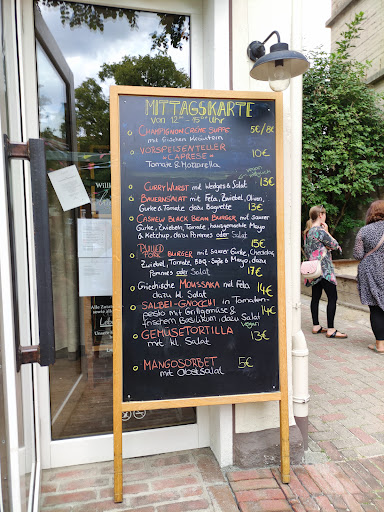 MITTAGSKARTE
von 12⁰⁰ - 15⁰⁰ Uhr
CHAMPIGNON CREME SUPPE 5€/8€
mit frischen Kräutern
VORSPEISENTELLER 10€
"CAPRESE"
Tomate & Mozzarella
CURRYWURST mit Wedges & Salat 13€
BAUERNSALAT mit Feta, Zwiebel, Oliven,
Gurke & Tomate dazu Baguette 13€
CASHEW BLACK BEAN BURGER mit saurer
Gurke, Zwiebeln, Tomate, hausgemachte Mayo
& Ketchup, dazu Pommes oder Salat
15€
PULLED
PORK BURGER mit saurer Gurke, Cheddar,
Zwiebel, Tomate, BBQ-Soße & Mayo, dazu
Pommes oder Salat 17€
Griechische MOUSSAKA mit Feta,
dazu kl. Salat 14€
SALBEI-GNOCCHI in Tomaten-
pesto mit Grillgemüse & 14€
frischen Basilikum, dazu Salat
vegan
GEMÜSETORTILLA 13€
mit kl. Salat
MANGOSORBET 5€
mit Obstsalat